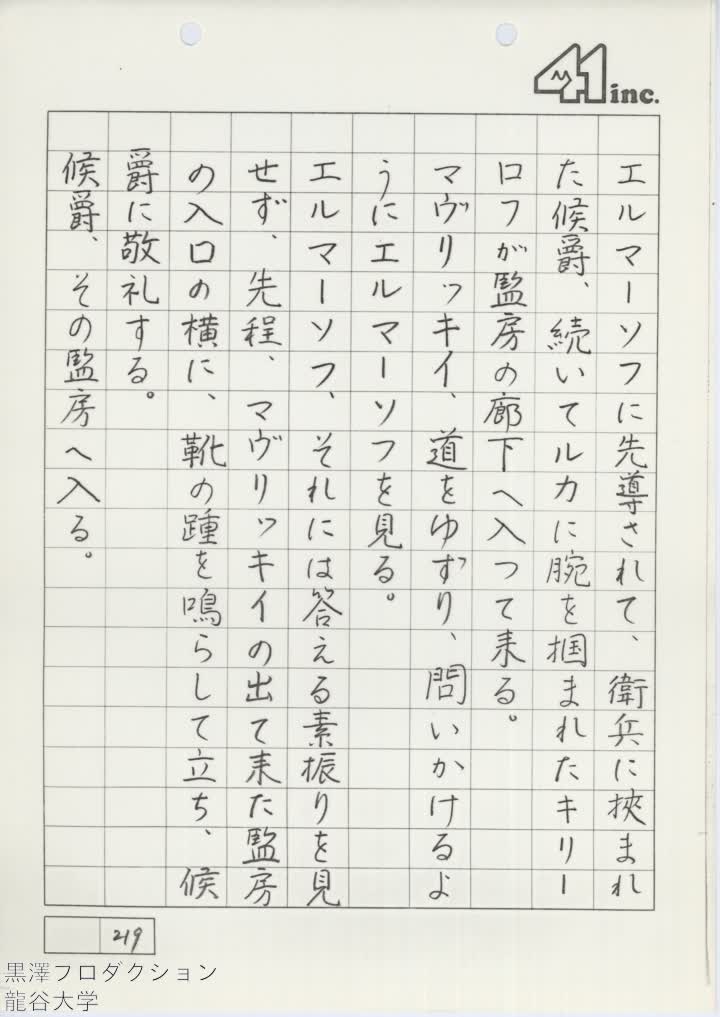 41 inc.
エルマーソフに先導されて、衛兵に挾まれ
た候爵、続いてルカに腕を掴まれたキリー
ロフが監房の廊下へ入つて来る。
マヴリッキイ、道をゆずり、問いかけるよ
うにエルマーソフを見る。
エルマーソフ、それには答える素振りを見
せず、先程、マヴリッキイの出て来た監房
の入口の横に、靴の踵を鳴らして立ち、候
爵に敬礼する。
候爵、その監房へ入る。
219
黒澤プロダクション
龍谷大学